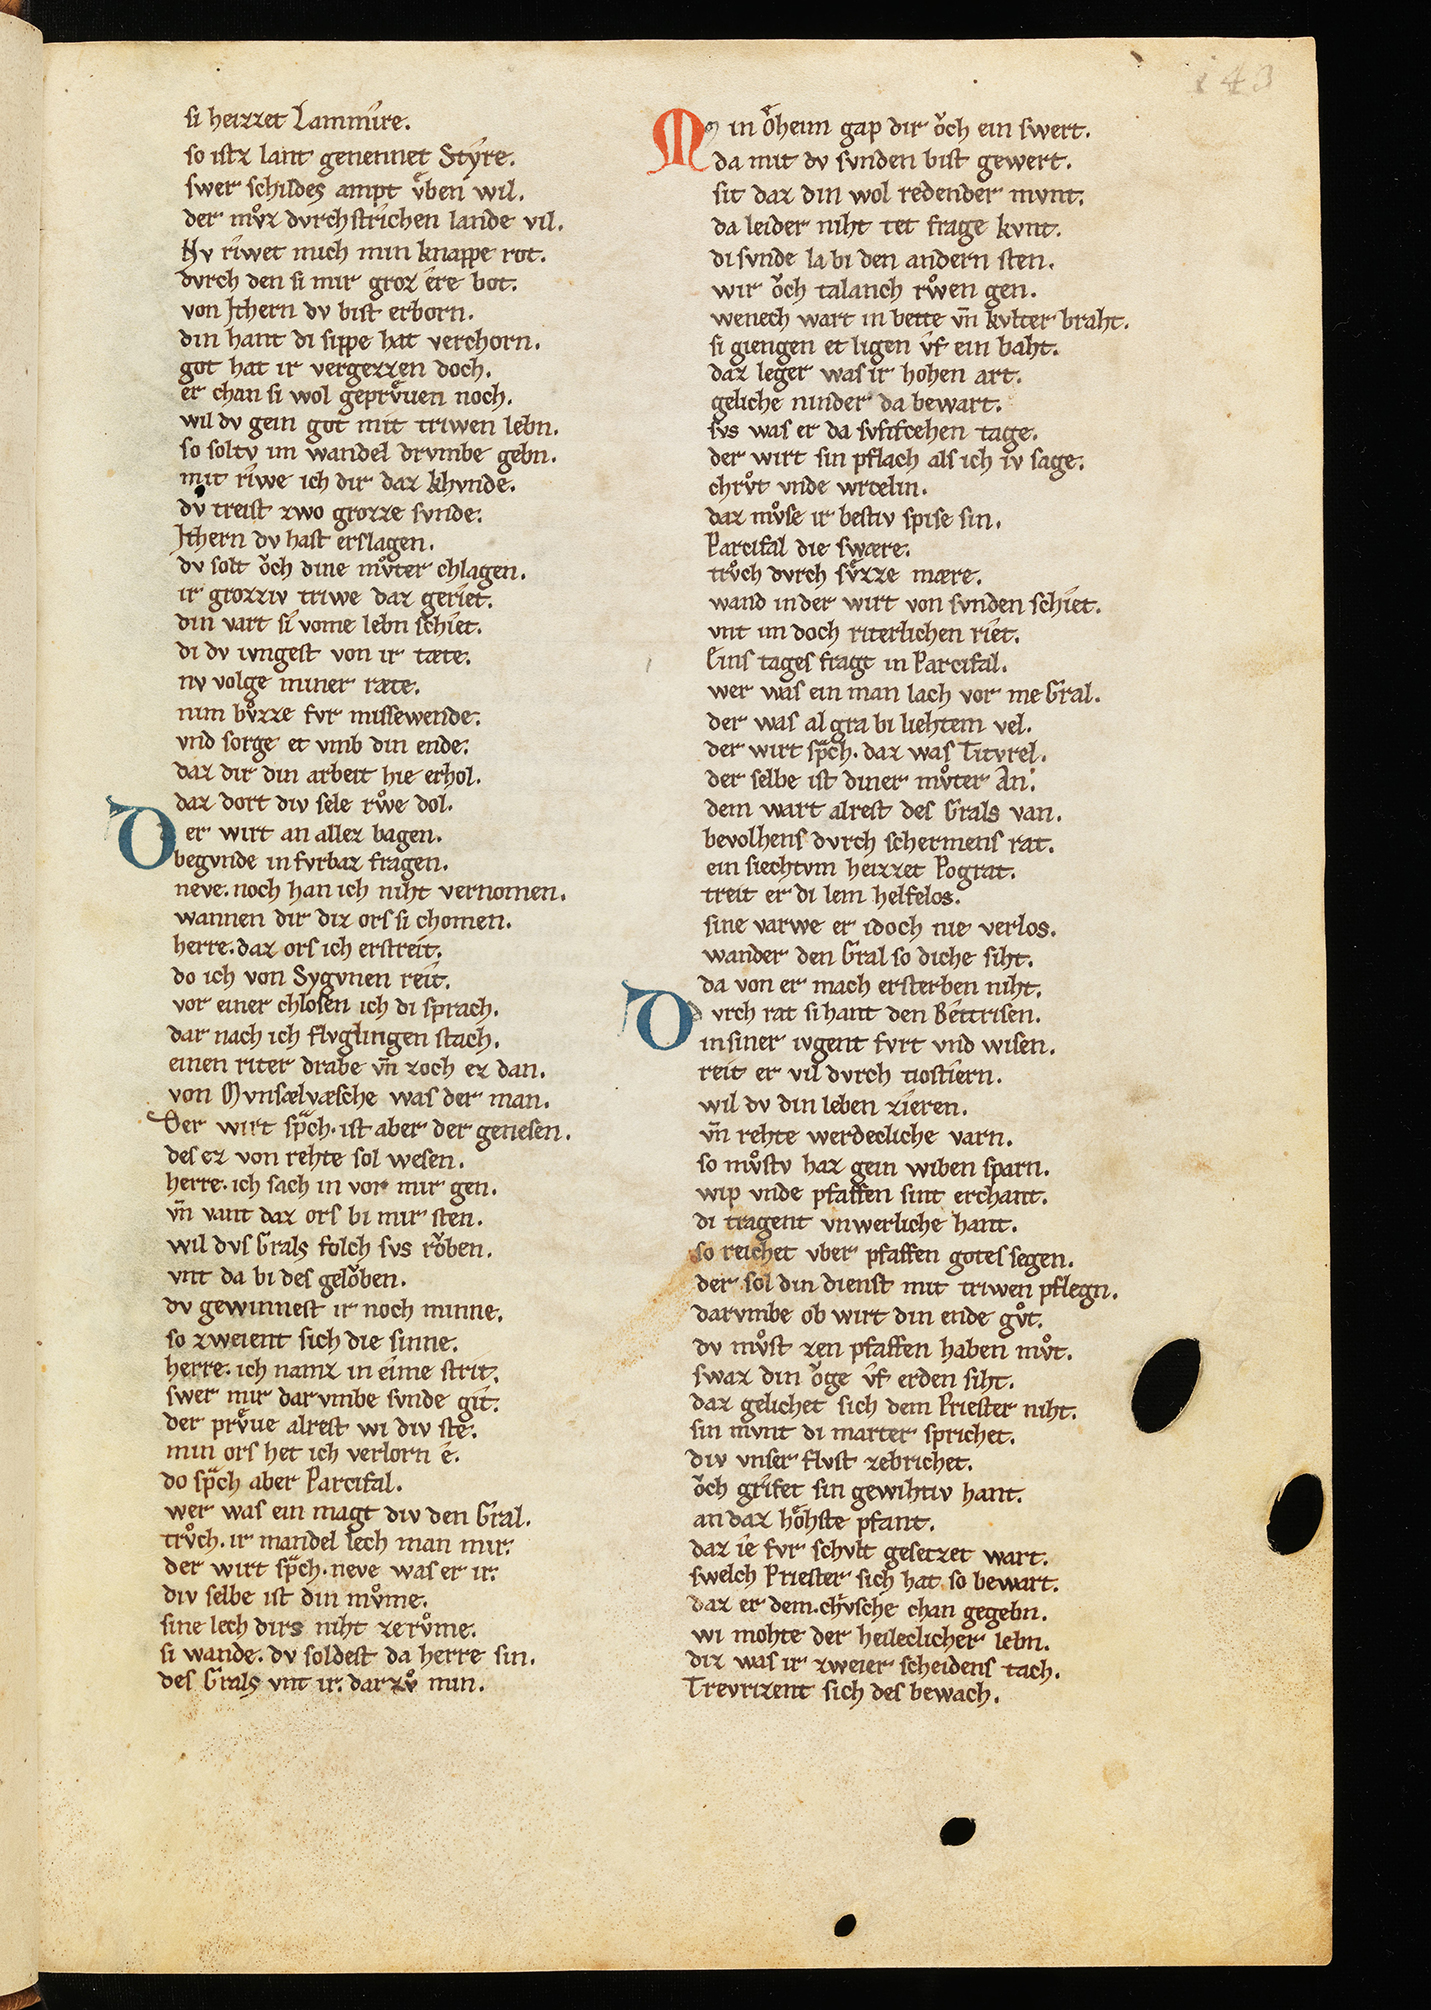 143
si heizzet Lammire.
so istz lant genennet Styre.
swer schildes ampt vͤben wil.
der mvͦz dvrchstrichen lande vil.
Nv riwet mich min knappe rot.
dvrch den si mir groz ere bot.
von Jthern dv bist erborn.
din hant di sippe hat verchorn.
got hat ir vergezzen doch.
er chan si wol geprvͤuen noch.
wil dv gein got mit triwen lebn.
so soltv im wandel drvmbe gebn.
mit riwe ich dir daz khvnde.
dv treist zwo grozze svnde.
Jthern dv hast erslagen.
dv solt oͮch dine mvͦter chlagen.
ir grozziv triwe daz geriet.
din vart si vome lebn schiet.
di dv ivngest von ir tæte.
nv volge miner ræte.
nim bvͦzze fvr missewende.
vnd sorge et vmb din ende.
daz dir din arbeit hie erhol.
daz dort div sele rvͦwe dol.
Der wirt an allez bagen.
begvnde in fvrbaz fragen.
neve. noch han ich niht vernomen.
wannen dir diz ors si chomen.
herre. daz ors ich erstreit.
do ich von Sygvnen reit.
vor einer chlosen ich di sprach.
dar nach ich flvglingen stach.
einen riter drabe vn̄ zoch ez dan.
von Mvnsælvæsche was der man.
Der wirt spͣch. ist aber der genesen.
des ez von rehte sol wesen.
herre. ich sach in vor mir gen.
vn̄ vant daz ors bi mir sten.
wil dvs Grals folch svs roͮben.
vnt da bi des geloͮben.
dv gewinnest ir noch minne.
so zweient sich die sinne.
herre. ich namz in eime strit.
swer mir darvmbe svnde git.
der prvͤue alrest wi div ste.
min ors het ich verlorn e.
do spͣch aber Parcifal.
wer was ein magt div den Gral.
trvͦch. ir mandel lech man mir.
der wirt spͣch. neve was er ir.
div selbe ist din mvͦme.
sine lech dirs niht ze rvͦme.
si wande. dv soldest da herre sin.
des Grals vnt ir. dar zvͦ min.
Min oͤheim gap dir oͮch ein swert.
da mit dv svnden bist gewert.
sit daz din wol redender mvnt.
da leider niht tet frage kvnt.
di svnde la bi den andern sten.
wir oͮch talanch rvͦwen gen.
wenech wart in bette vn̄ kvlter braht.
si giengen et ligen vf ein baht.
daz leger was ir hohen art.
geliche ninder da bewart.
svs was er da fvnfcehen tage.
der wirt sin pflach als ich iv sage.
chrvͦt vnde wrcelin.
daz mvͦse ir bestiv spise sin.
Parcifal die swære.
trvͦch dvrch svͤzze mære.
wand in der wirt von svnden schiet.
vnt im doch riterlichen riet.
Eins tages fragt in Parcifal.
wer was ein man lach vor me Gral.
der was al gra bi liehtem vel.
der wirt spͣch. daz was Titvrel.
der selbe ist diner mvͦter An.
dem wart alrest des Grals van.
bevolhens dvrch schermens rat.
ein siechtvm heizzet Pograt.
treit er di lem helfelos.
sine varwe er idoch nie verlos.
wander den Gral so diche siht.
da von er mach ersterben niht.
Dvrch rat si hant den Bettrisen.
in siner ivgent fvrt vnd wisen.
reit er vil dvrch tiostiern.
wil dv din leben zieren.
vn̄ rehte werdecliche varn.
so mvͦstv haz gein wiben sparn.
wip vnde pfaffen sint erchant.
di tragent vnwerliche hant.
so reichet vber pfaffen gotes segen.
der sol din dienst mit triwen pflegn.
darvmbe ob wirt din ende gvͦt.
dv mvͦst zen pfaffen haben mvͦt.
swaz din oͮge vf erden siht.
daz gelichet sich dem Priester niht.
sin mvnt di marter sprichet.
div vnser flvst zebrichet.
oͮch grifet sin gewihtiv hant.
an daz hoͤhste pfant.
daz ie fvr schvlt gesetzet wart.
swelch Priester sich hat so bewart.
daz er dem. chvͤsche chan gegebn.
wi mohte der heileclicher lebn.
diz was ir zweier scheidens tach.
Trevrizent sich des bewach.